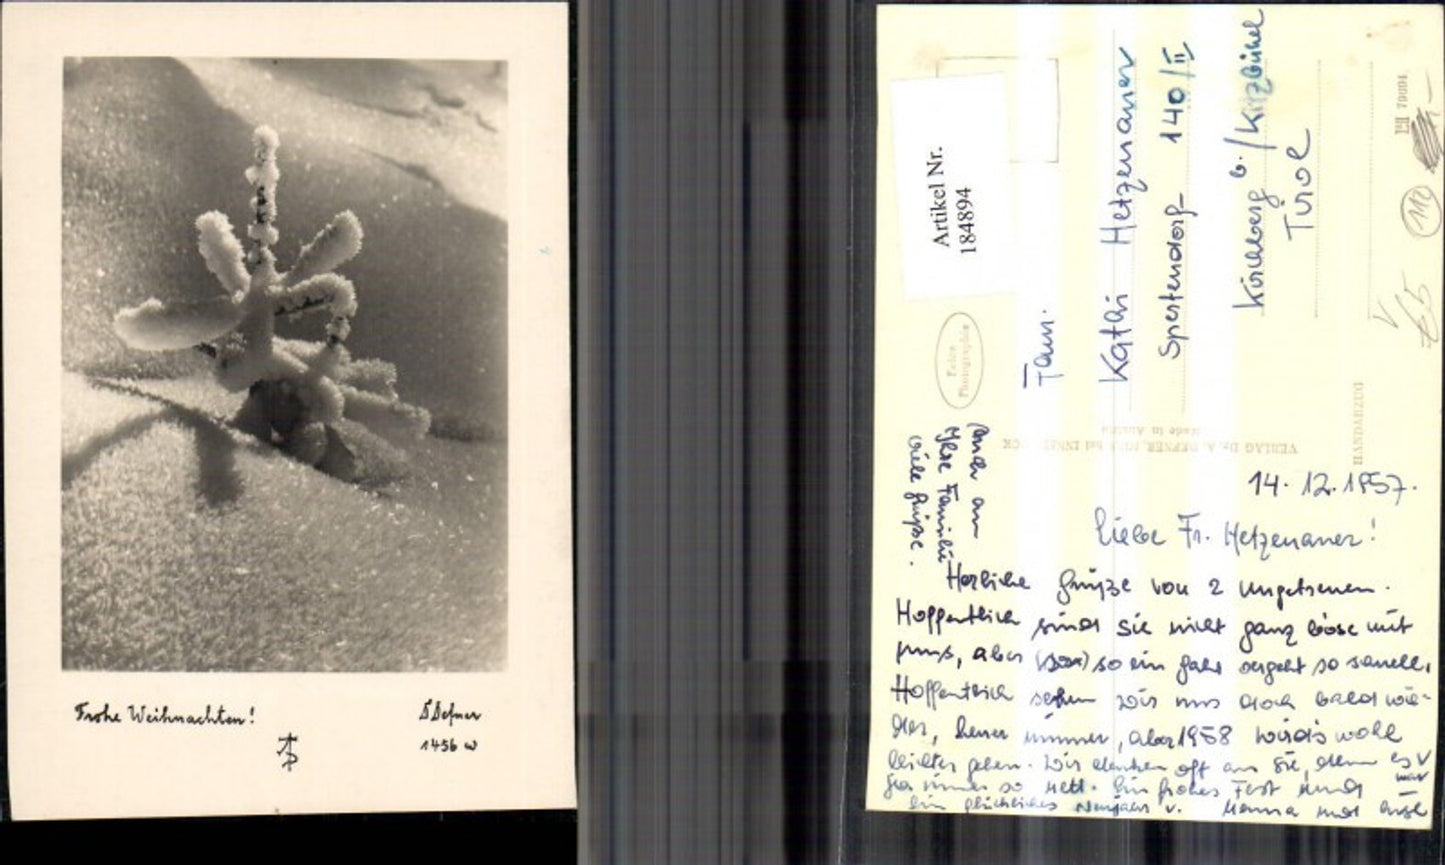 Frohe Weihnachten!
D Defner
1456 w
Artikel Nr.
184894
Echte
Photographie
Fam.
Kathi Hetzenauer
Spertendorf 140/II
Kirchberg b./Kitzbühel
Tirol
112
65
VERLAG Dr. A. DEFNER, IGLS bei INNSBRUCK
Made in Austria
HANDABZUG
14.12.1957.
Liebe Fr. Hetzenauer!
Herzliche Grüße von 2 Ungetreuen.
Hoffentlich sind Sie nicht ganz böse mit
uns, aber so ein Jahr vergeht so schnell,
Hoffentlich sehen wir uns doch bald wie-
der, heuer nimmer, aber 1958 wird's wohl
leichter gehen. Wir denken oft an Sie, denn es war
ja immer so nett. Ein frohes Fest und
ein glückliches Neujahr v. Hanna und
Auch an
Ihre Familie
viele Grüße.